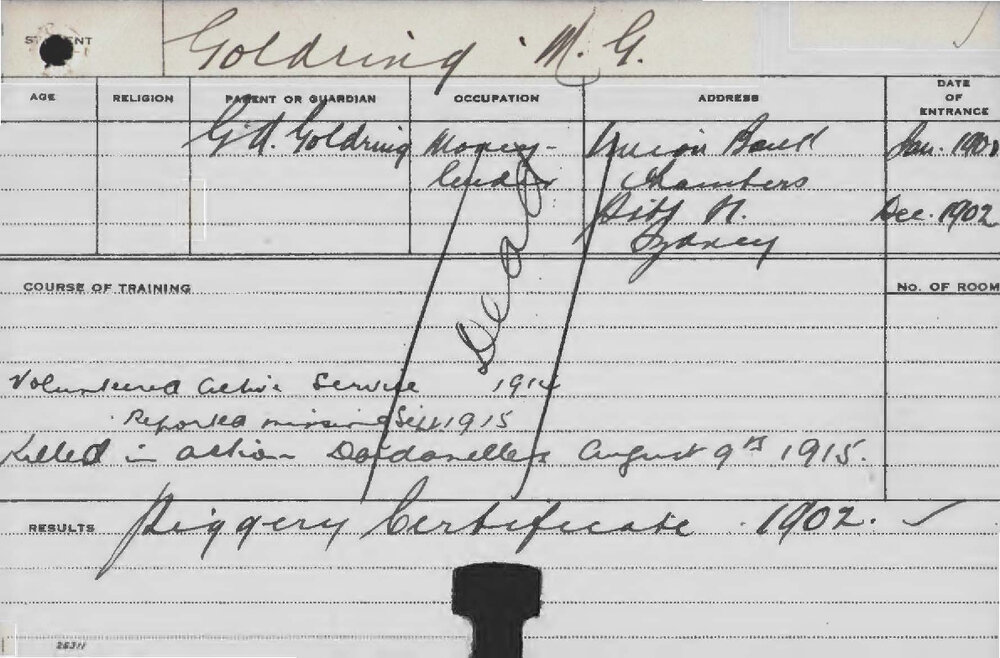 STUDENT Goldring M. G.
AGE RELIGION PARENT OR GUARDIAN OCCUPATION ADDRESS DATE OF ENTRANCE
G. A. Goldring Money- Union Bank Jan. 1901
lender Chambers
Pitt St. Dec. 1902
Sydney
Dead
COURSE OF TRAINING No. OF ROOM
Volunteered active Service 1914
Reported missing Sept 1915
Killed in action Dardanelles August 9th 1915.
RESULTS Piggery Certificate . 1902. ✓
26311